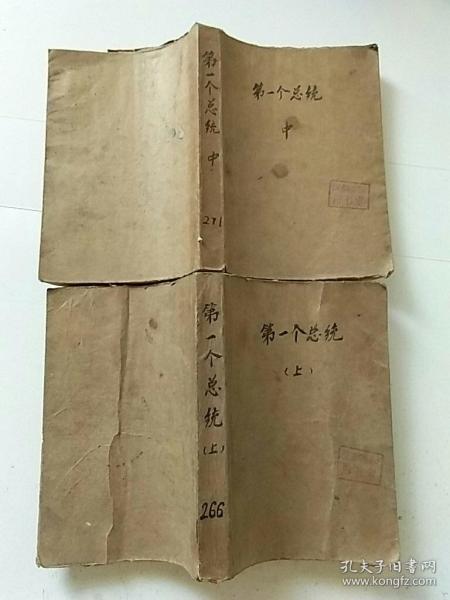 第一个总统 中
271
第一个总统
中
第一个总统
（上）
266
第一个总统
（上）
孔夫子旧书网
www.kongfz.com